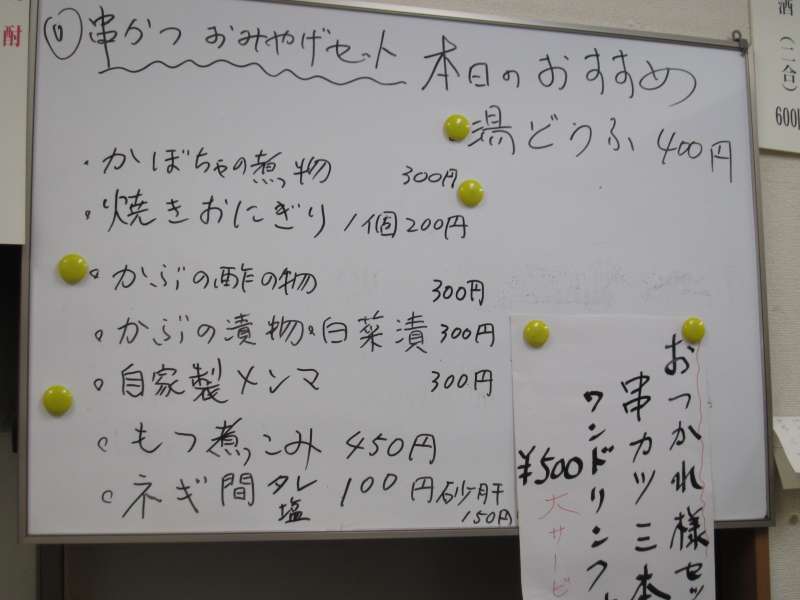 串かつ おみやげセット
本日のおすすめ
湯どうふ 400円
・かぼちゃの煮物 300円
・焼きおにぎり 1個 200円
・かぶの酢の物 300円
・かぶの漬物・白菜漬 300円
・自家製メンマ 300円
・もつ煮っこみ 450円
・ネギ間 タレ 塩 100円 砂肝 150円
おつかれ様セッ
串カツ三本
ワンドリンク
¥500
大サービ
酒(二合)
600
酎